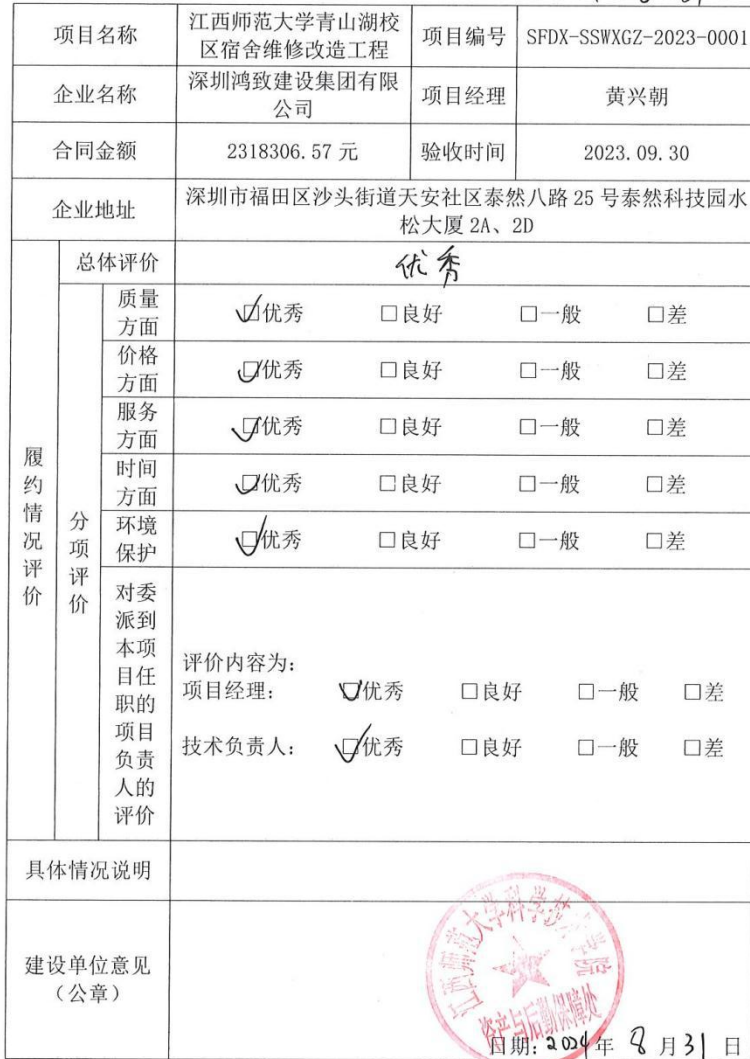 项目名称 江西师范大学青山湖校区宿舍维修改造工程 项目编号 SFDX-SSWXGZ-2023-0001
企业名称 深圳鸿致建设集团有限公司 项目经理 黄兴朝
合同金额 2318306.57 元 验收时间 2023.09.30
企业地址 深圳市福田区沙头街道天安社区泰然八路 25 号泰然科技园水松大厦 2A、2D
履约情况评价
总体评价 优秀
分项评价
质量方面 ☑优秀 □良好 □一般 □差
价格方面 ☑优秀 □良好 □一般 □差
服务方面 ☑优秀 □良好 □一般 □差
时间方面 ☑优秀 □良好 □一般 □差
环境保护 ☑优秀 □良好 □一般 □差
对委派到本项目任职的项目负责人的评价
评价内容为:
项目经理: ☑优秀 □良好 □一般 □差
技术负责人: ☑优秀 □良好 □一般 □差
具体情况说明
建设单位意见
(公章)
江西师范大学科学技术学院
资产与后勤保障处
日期: 2024 年 8 月 31 日